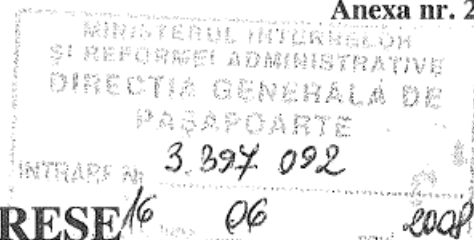 Anexa nr. 2
MINISTERUL INTERNELOR
ȘI REFORMEI ADMINISTRATIVE
DIRECȚIA GENERALĂ DE
PAȘAPOARTE
INTRARE Nr. 3.397 092
RESE 16 06 2008